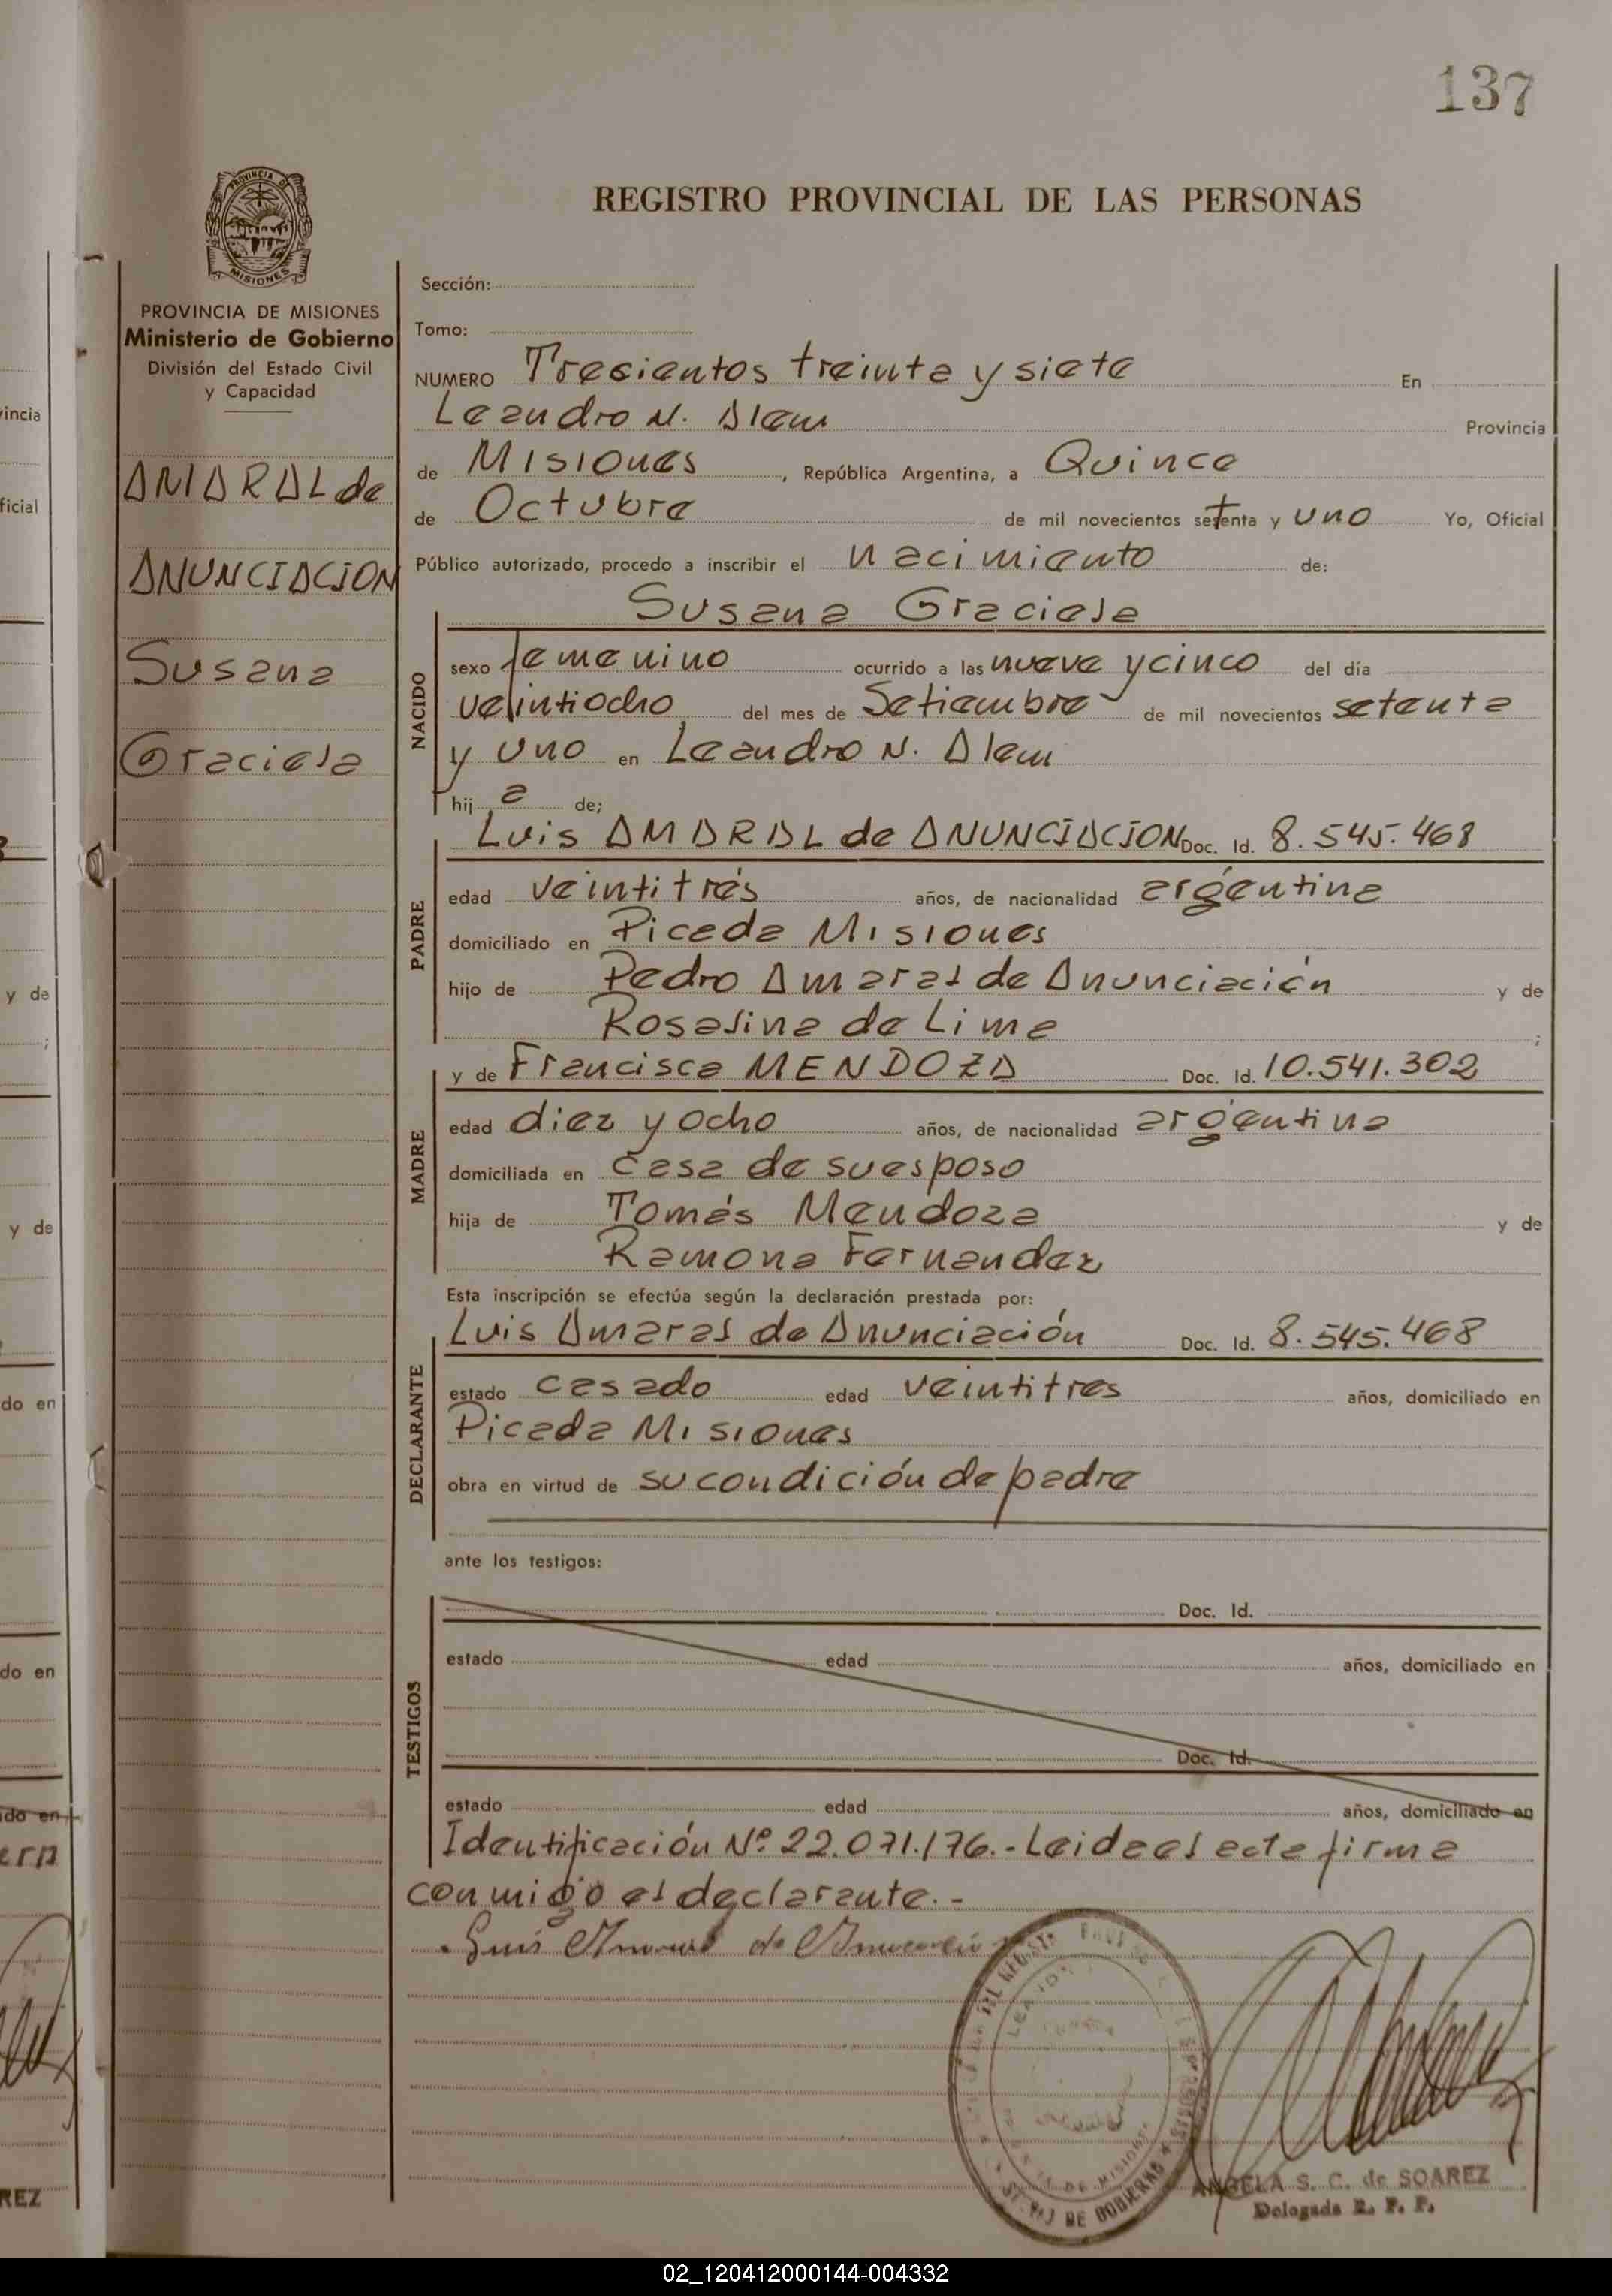 137
REGISTRO PROVINCIAL DE LAS PERSONAS
PROVINCIA DE MISIONES
Ministerio de Gobierno
División del Estado Civil
y Capacidad
AMARAL de
ANUNCIACION
Susana
Graciela
Sección:
Tomo:
NUMERO Trecientos treinta y siete En
Leandro N. Alem Provincia
de Misiones, República Argentina, a Quince
de Octubre de mil novecientos setenta y uno Yo, Oficial
Público autorizado, procedo a inscribir el nacimiento de:
Susana Graciela
NACIDO
sexo femenino ocurrido a las nueve y cinco del día
veintiocho del mes de Setiembre de mil novecientos setenta
y uno en Leandro N. Alem
hij a de;
PADRE
Luis AMARAL de ANUNCIACION Doc. Id. 8.545.468
edad veintitrés años, de nacionalidad argentina
domiciliado en Picada Misiones
hijo de Pedro Amaral de Anunciación y de
Rosalina de Lima ;
MADRE
y de Francisca MENDOZA Doc. Id. 10.541.302
edad diez y ocho años, de nacionalidad argentina
domiciliada en casa de su esposo
hija de Tomás Mendoza y de
Ramona Fernandez
Esta inscripción se efectúa según la declaración prestada por:
DECLARANTE
Luis Amaral de Anunciación Doc. Id. 8.545.468
estado casado edad veintitres años, domiciliado en
Picada Misiones
obra en virtud de su condición de padre
ante los testigos:
TESTIGOS
Doc. Id.
estado edad años, domiciliado en
Doc. Id.
estado edad años, domiciliado en
Identificación Nº 22.071.176.- Leida el acta firma
conmigo el declarante.-
Luis Amaral de Anunciación
ANGELA S. C. de SOAREZ
Delegada R. P. P.
02_120412000144-004332